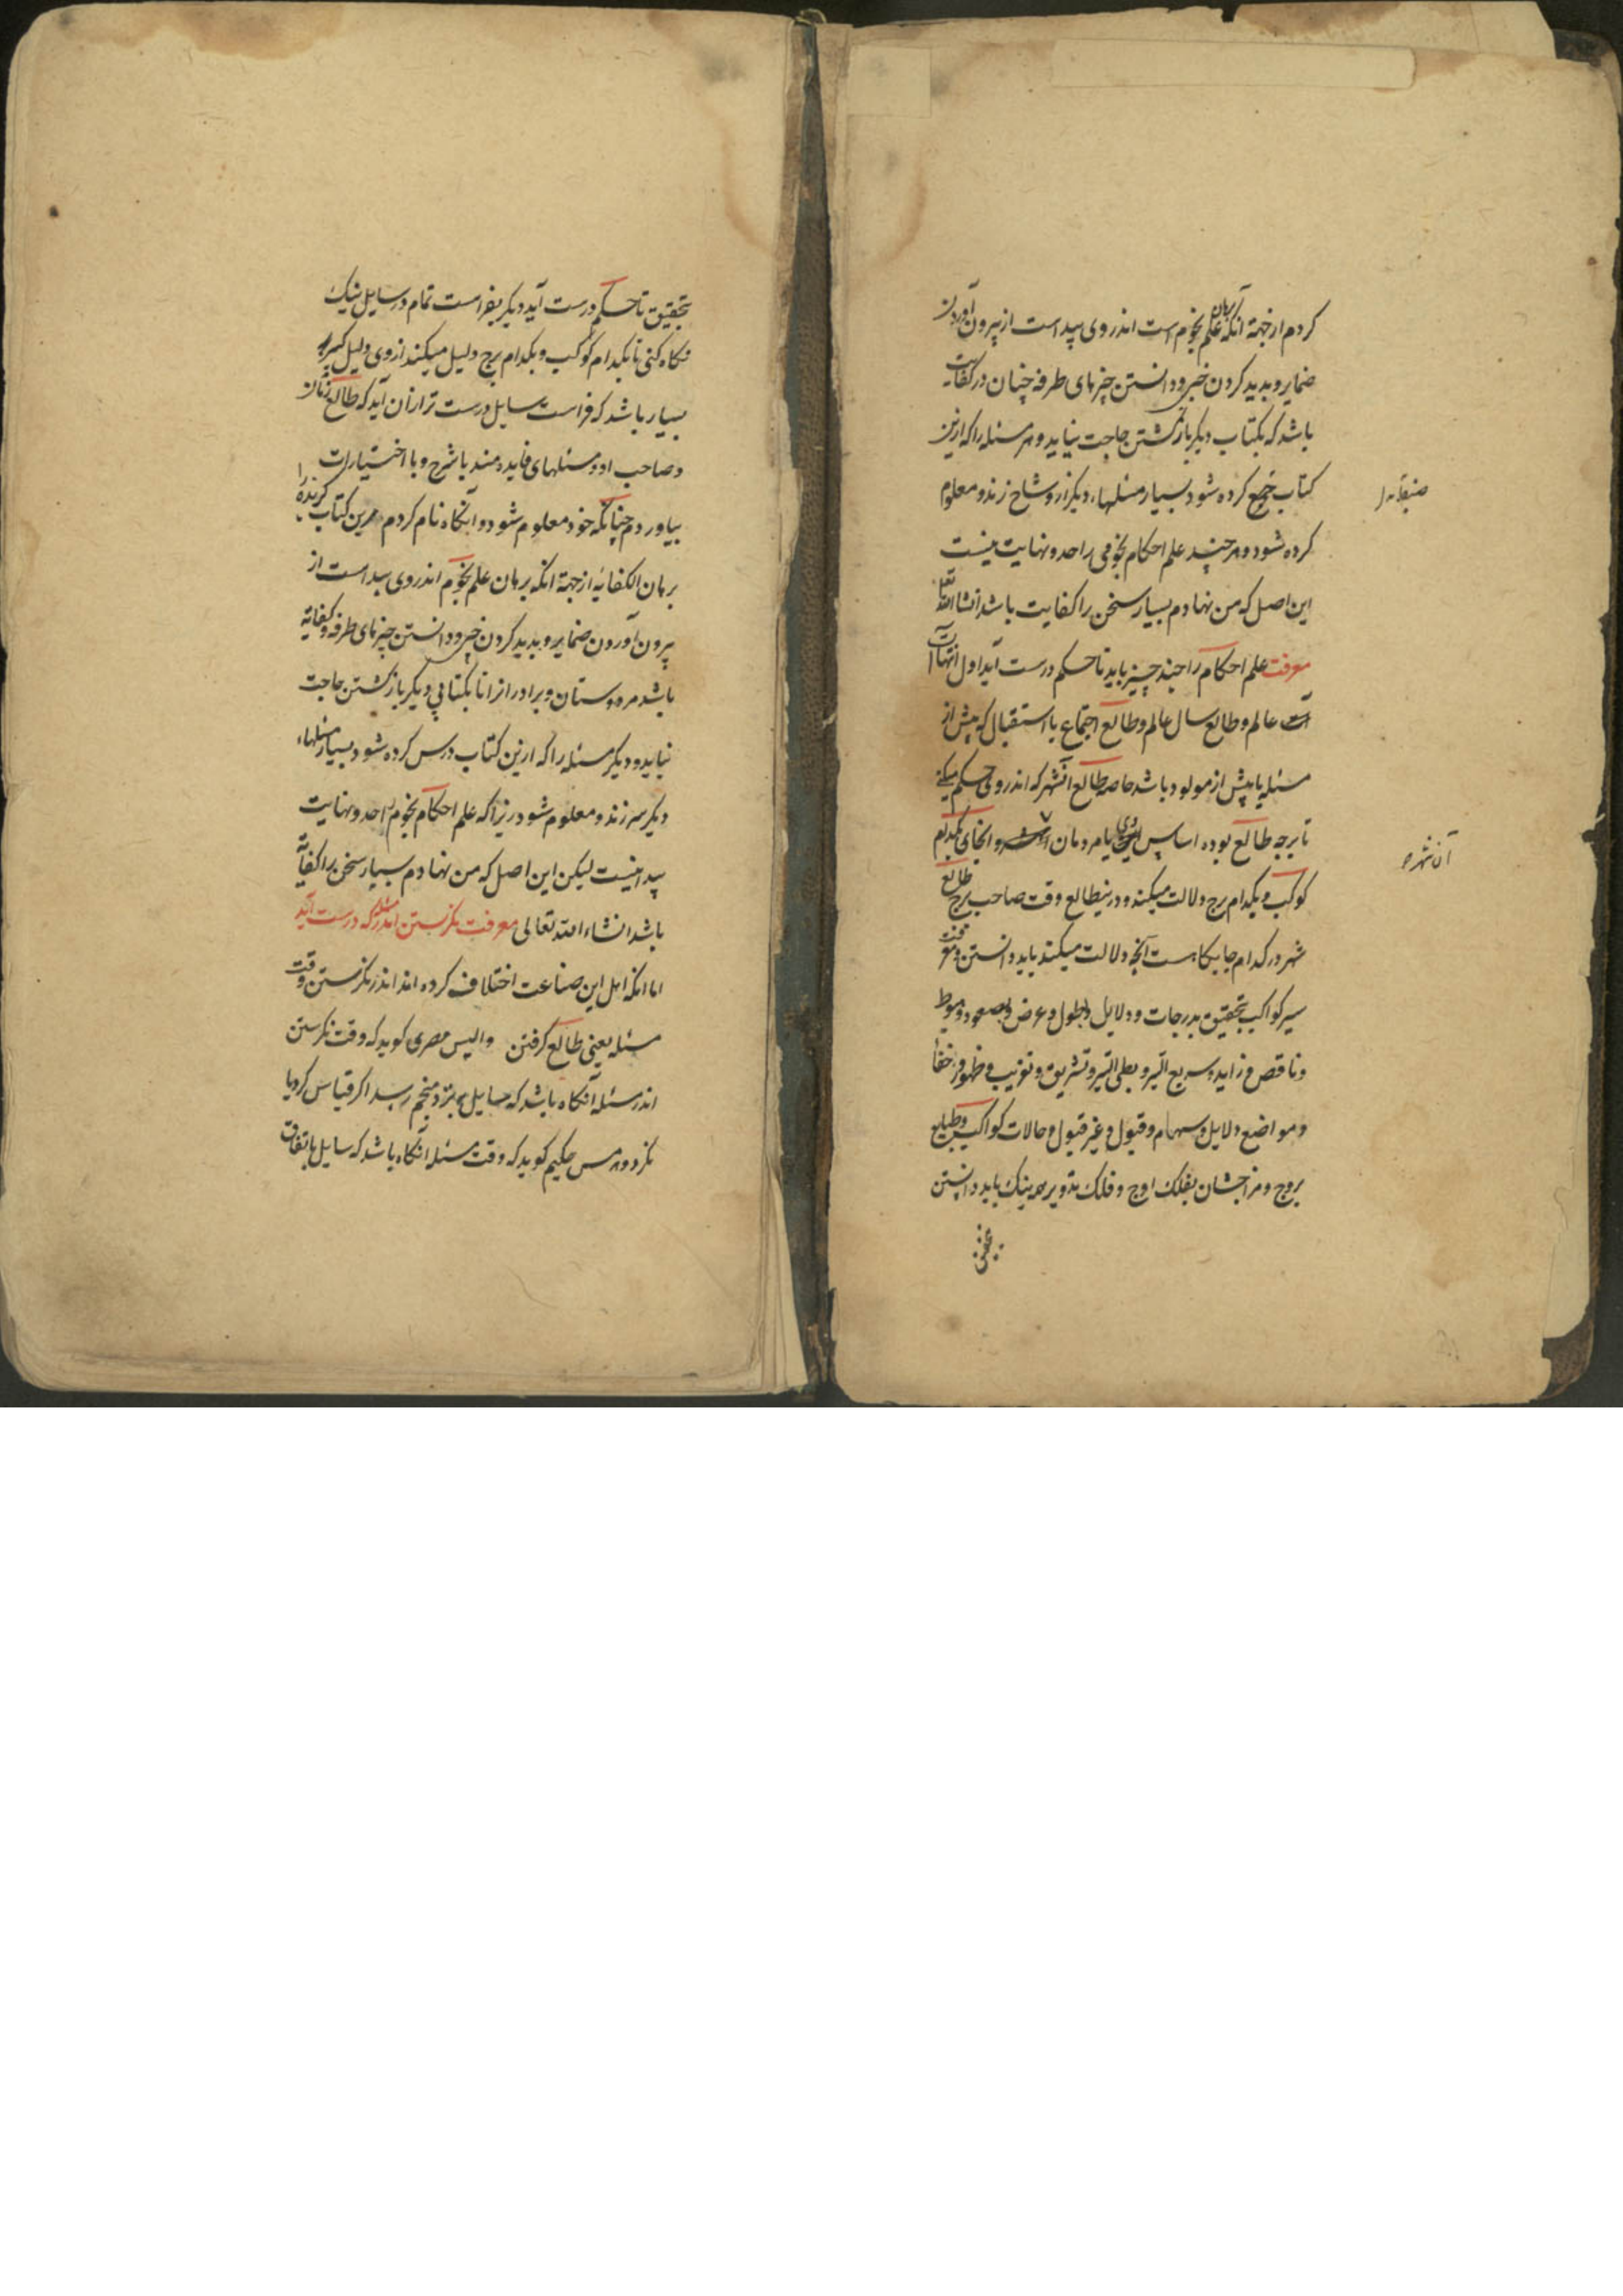 کردم از جهة انکه برهان علم نجوم است اندر وی پیداست از بیرون آوردن
ضمایر و بدید کردن خبی و دانستن چیزهای طرفه چنان در کفایت
باشد که بکتاب دیکر بازکشتن حاجت نیاید و هر مسئله را که ازین
کتاب جمع کرده شود بسیار مسئلهاء دیکر از و شاخ زند و معلوم
کرده شود و هر چند علم احکام نجومی را حد و نهایت نیست
این اصل که من نهادم بسیار سخن را کفایت باشد انشاالله تعا
معرفت علم احکام را چند چیز باید تا حکم درست آید اول انتهاآت
عالم و طالع سال عالم و طالع اجتماع یا استقبال که پیش از
مسئله یا پیش از مولود باشد خاصه طالع آنشهر که اندر وی حکم میکنی
تا برچه طالع بوده اساس یا مردمان و انجای بکدام
کوکب و بکدام برج دلالت میکند و درین طالع وقت صاحب برج طالع
شهر در کدام جایکاست آنچه دلالت میکند باید دانستن و معرفت
سیر کواکب بتحقیق بدرجات و دلایل و بطول و عرض و بصعود و هبوط
و ناقص و زاید و سریع السیر و بطی السیر و تشریق و تغریب و ظهور و خفا
و مواضع دلایل و سهام و قبول و غیر قبول و حالات کواکب و طبایع
بروج و مزاجشان بفلک اوج و فلک تدویر همه نیک باید دانستن
آن شهر
بتحقیق تا حکم درست آید دیکر بفراست تمام در سایل نیک
نکاه کنی تا بکدام کوکب و بکدام برج دلیل میکند از وی دلیل کیر
بسیار باشد که فراست سایل درست تر از آن آید که طالع زمان
و صاحب او و مسئلهای فایده مند با شرح و با اختیارات
بیاوردم چنانکه خود معلوم شود و آنکاه نام کردم مرین کتاب کزیده را
برهان الکفایه از جهة انکه برهان علم نجوم اندر وی پیداست از
بیرون آوردن ضمایر و بدید کردن خبی و دانستن چیزهای طرفه و کفایة
باشد مر دوستان و برادرانرا تا بکتابی دیکر بازکشتن حاجت
نیاید و دیکر مسئله را که ازین کتاب درس کرده شود بسیار مسئلهاء
دیکر سر زند و معلوم شود زیرا که علم احکام نجوم را حد و نهایت
پیدا نیست لیکن این اصل که من نهادم بسیار سخن را کفایة
باشد انشاء الله تعالی معرفت نکرستن اندر مسئله که درست آید
اما انکه اهل این صناعت اختلاف کرده اند اندر نکرستن وقت
مسئله یعنی طالع کرفتن والیس مصری کوید که وقت نکرستن
اندر مسئله آنکاه باشد که سایل بنزد منجم رسد اکر قیاس کرد یا
نکرد و هرمس حکیم کوید که وقت مسئله آنکاه باشد که سایل باتفاق